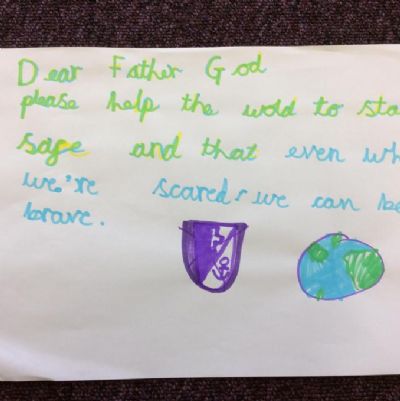 Dear Father God
please help the wold to sta
safe and that even wh
we're scared, we can be
brave.